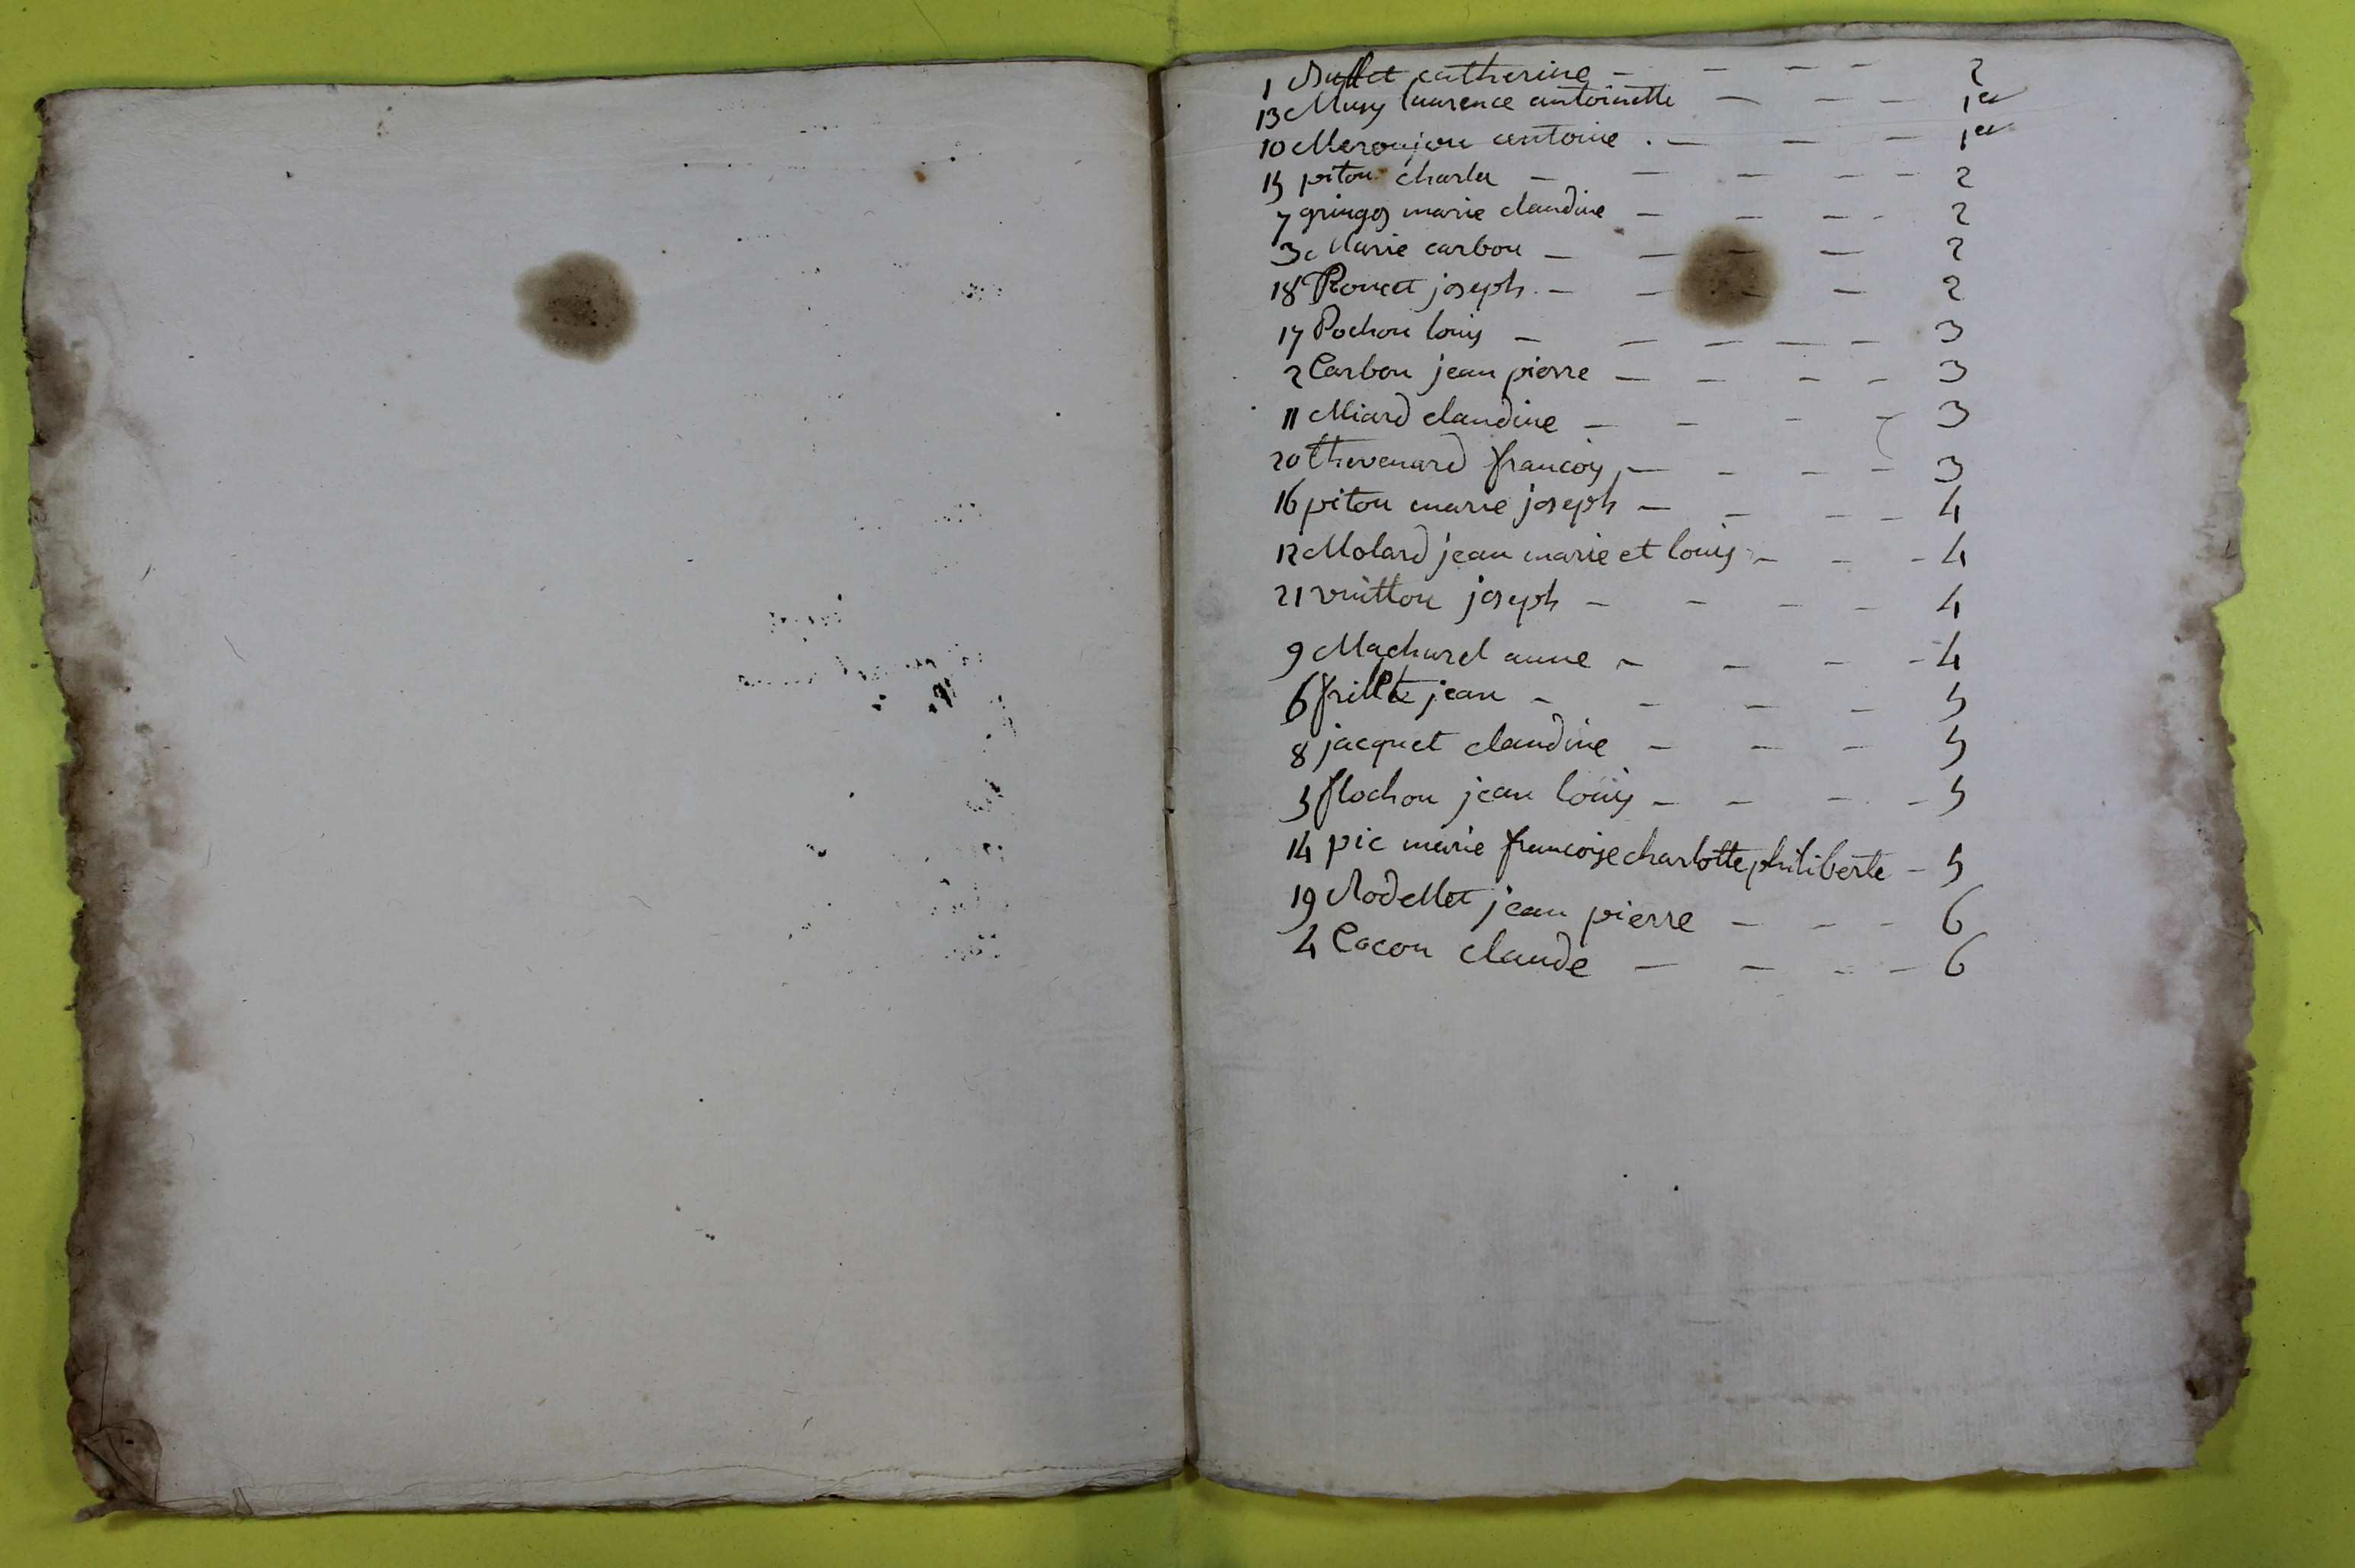 1 Buffet catherine - - - - 2
13 Musy laurence antoinette - - - 1er
10 Meroujou antoine . - - - 1er
15 pitou charles - - - - - 2
7 gringoz marie claudine - - - - 2
3 Marie carbon - - - - 2
18 Rouet joseph - - - - 2
17 Pochon louis - - - - - - 3
2 Carbon jean pierre - - - - 3
11 Miard claudine - - - - 3
20 thevenard francois - - - - 3
16 pitou marie joseph - - - - 4
12 Molard jean marie et louis - - - 4
21 vuitton joseph - - - - 4
9 Machard anne - - - - 4
6 frillet jean - - - - 5
8 jacquet claudine - - - 5
5 flochon jean louis - - - - 5
14 pic marie francoise charlotte philiberte - 5
19 Rodellet jean pierre - - - 6
4 Cocon claude - - - - 6